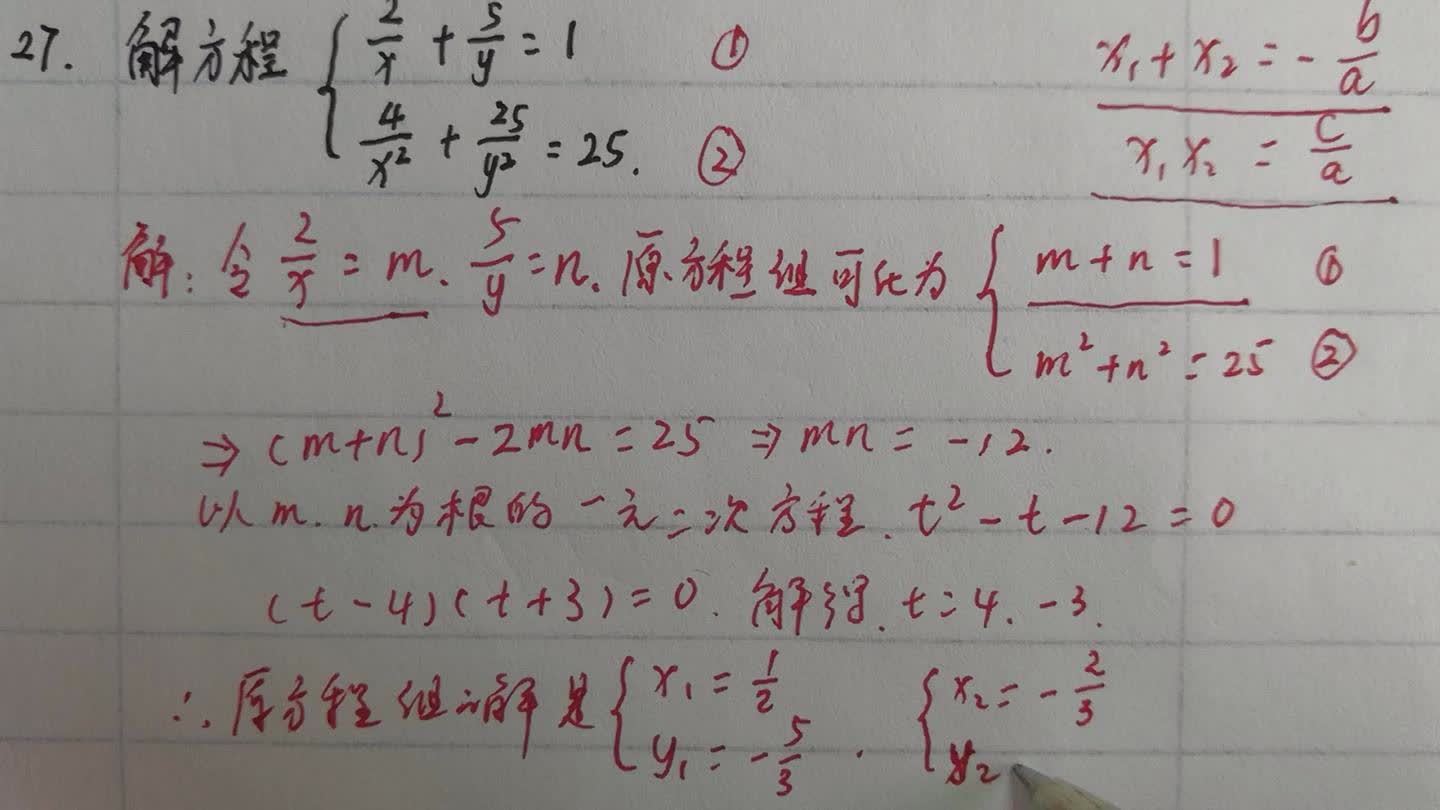 27. 解方程 { 2/x + 5/y = 1 ①
4/x² + 25/y² = 25. ②
x₁ + x₂ = - b/a
x₁x₂ = c/a
解: 令 2/x = m. 5/y = n. 原方程组可化为 { m + n = 1 ①
m² + n² = 25 ②
⇒ (m+n)² - 2mn = 25 ⇒ mn = -12.
以 m. n. 为根的一元二次方程. t² - t - 12 = 0
(t - 4)(t + 3) = 0. 解得. t = 4. -3.
∴ 原方程组的解是 { x₁ = 1/2 { x₂ = - 2/3
y₁ = - 5/3 . y₂